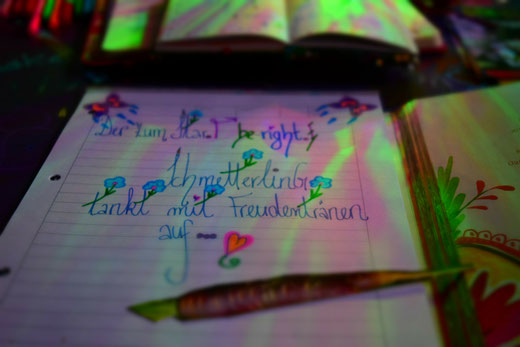 Der zum Star be right
Schmetterling
tankt mit Freudentränen
auf ...